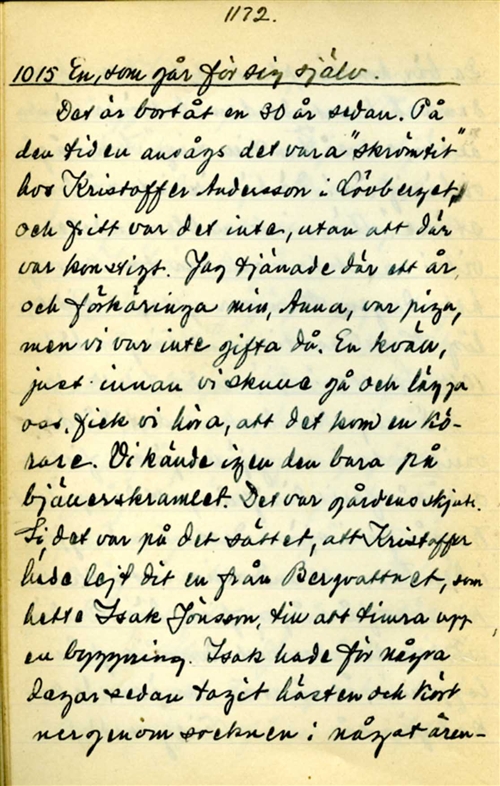 1172.
1015 En, som går för sig själv.
Det är bortåt en 30 år sedan. På
den tiden ansågs det vara "skrömtit"
hos Kristoffer Andersson i Lövberget,
och fritt var det inte, utan att där
var konstigt. Jag tjänade där ett år,
och förkäringa min, Anna, var piga,
men vi var inte gifta då. En kväll,
just innan vi skulle gå och lägga
oss, fick vi höra, att det kom en kö-
rare. Vi kände igen den bara på
bjällerskramlet. Det var gårdens skjuts.
Si, det var på det sättet, att Kristoffer
hade lejt dit en från Bergvattnet, som
hette Isak Jönsson, till att timra upp
en byggning. Isak hade för några
dagar sedan tagit hästen och kört
ner genom socknen i något ären-